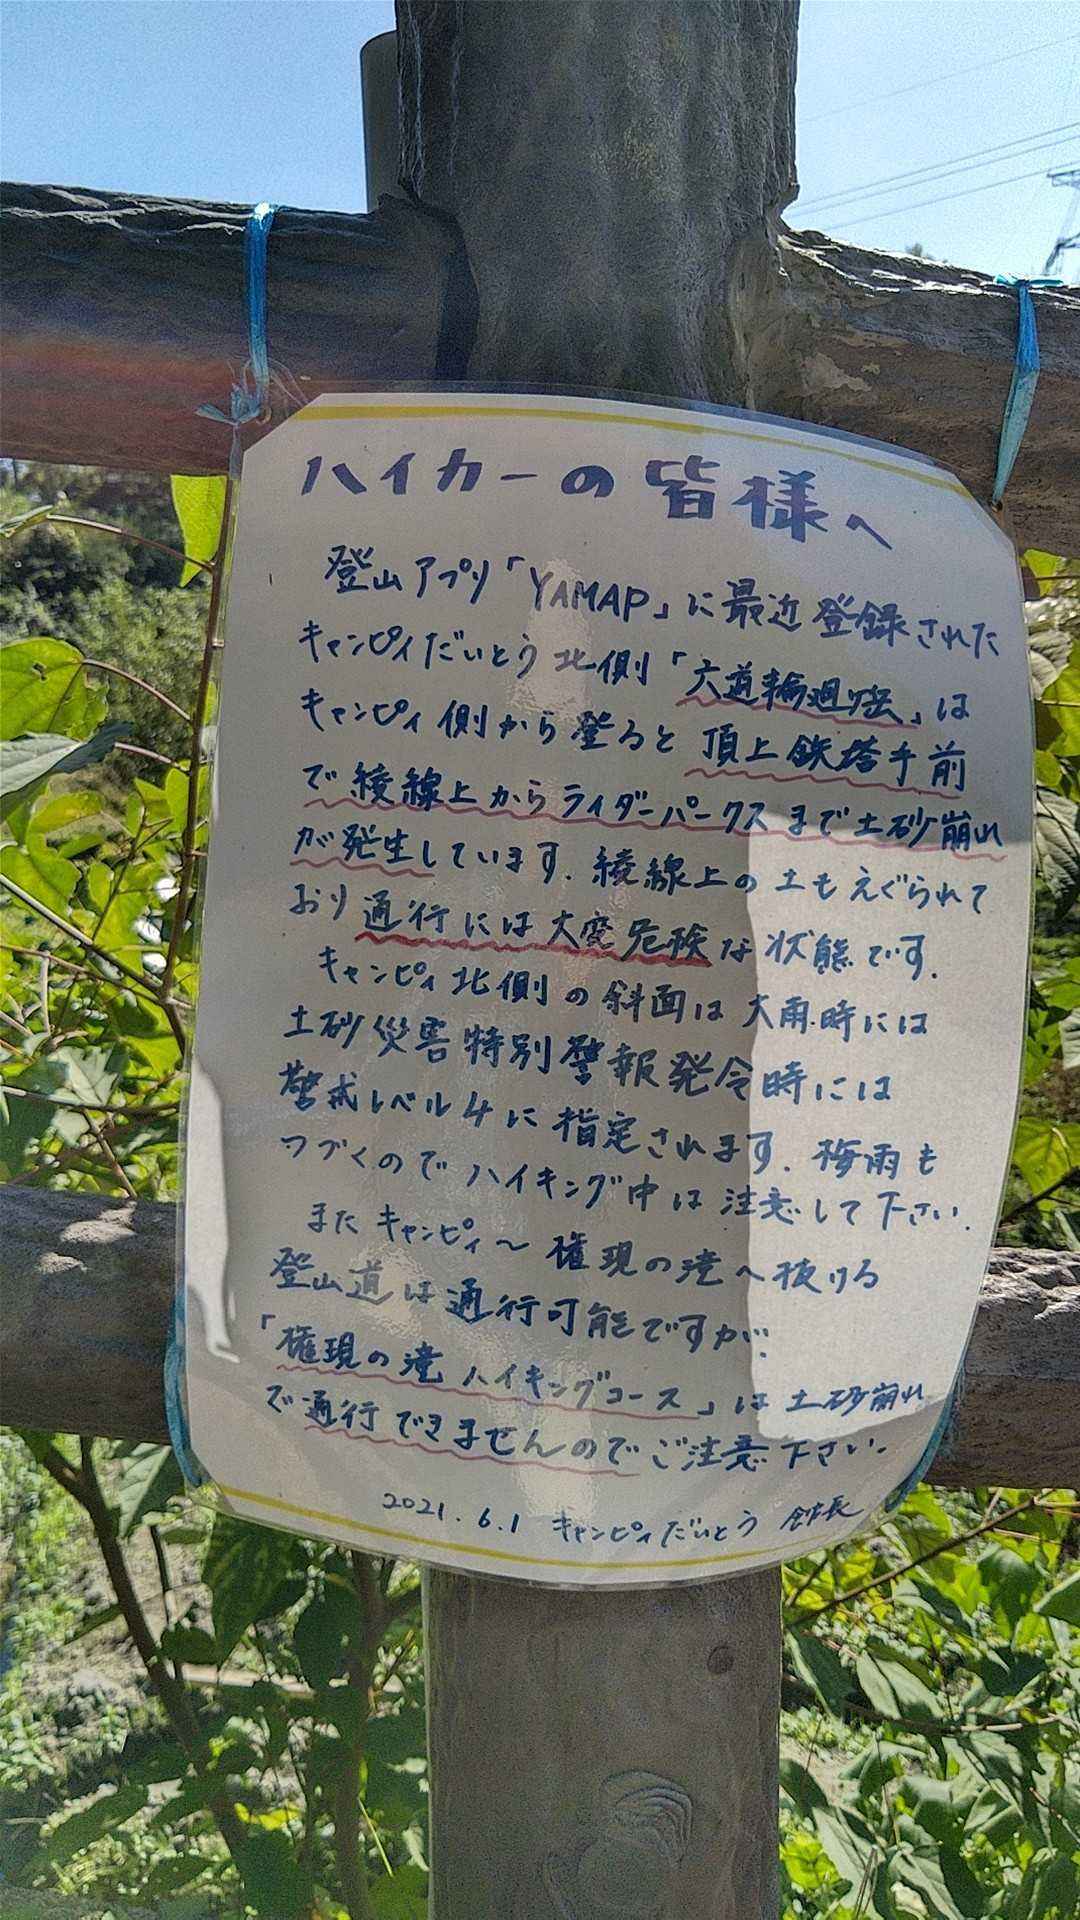 ハイカーの皆様へ
登山アプリ「YAMAP」に最近登録された
キャンピィだいとう北側「六道輪廻坂」は
キャンピィ側から登ると頂上鉄塔手前
で綾線上からライダーパークスまで土砂崩れ
が発生しています。綾線上の土もえぐられて
おり通行には大変危険な状態です。
キャンピィ北側の斜面は大雨時には
土砂災害特別警報発令時には
警戒レベル4に指定されます。梅雨も
つづくのでハイキング中は注意して下さい。
またキャンピィ〜権現の滝へ抜ける
登山道は通行可能ですが、
「権現の滝ハイキングコース」は土砂崩れ
で通行できませんのでご注意下さい。
2021.6.1 キャンピィだいとう 館長